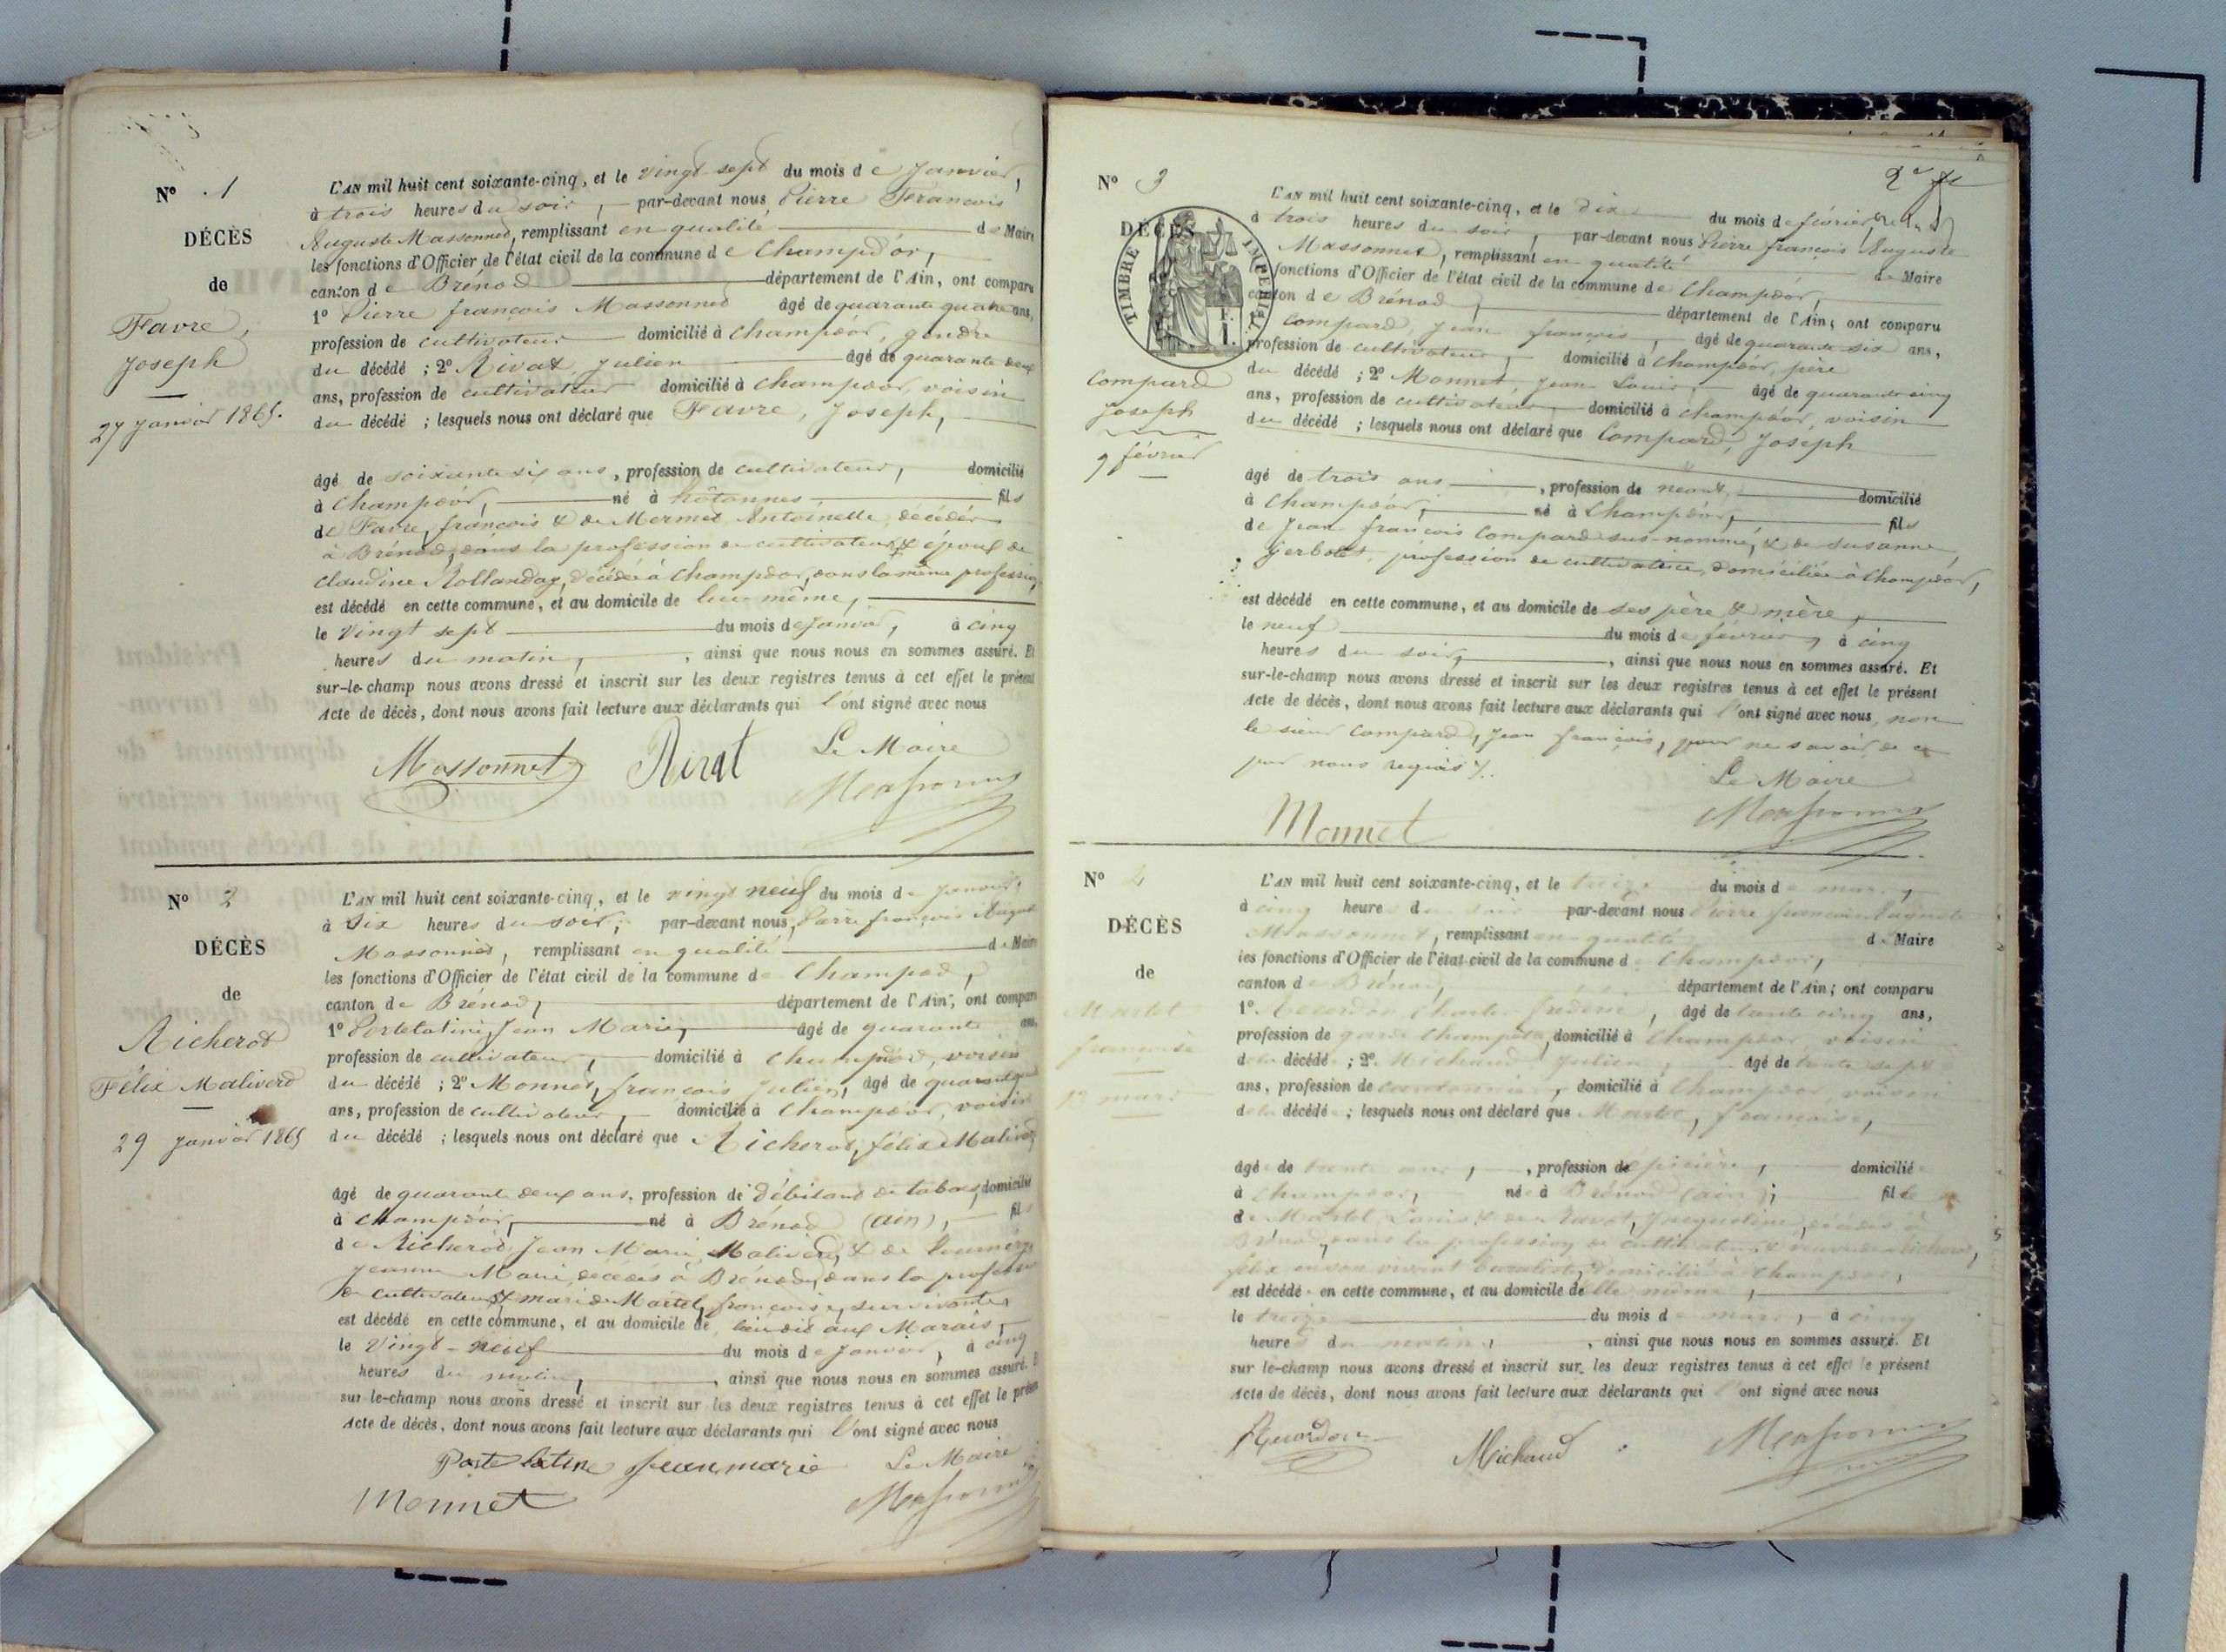 N° 1
DÉCÈS
de
Favre,
Joseph
27 janvier 1865.
L'AN mil huit cent soixante-cinq, et le vingt sept du mois de Janvier,
à trois heures du soir, par-devant nous Pierre François
Auguste Massonnet, remplissant en qualité de Maire
les fonctions d'Officier de l'état civil de la commune de Champdor,
canton de Brénod département de l'Ain, ont comparu
1° Pierre françois Massonnet âgé de quarante quatre ans,
profession de cultivateur domicilié à Champdor, gendre
du décédé ; 2° Rivat, Julien âgé de quarante deux
ans, profession de cultivateur domicilié à Champdor, voisin
du décédé ; lesquels nous ont déclaré que Favre, Joseph,
âgé de soixante six ans, profession de cultivateur, domicilié
à Champdor, né à hôtonnes fils
de Favre, françois & de Mermet Antoinette, décédés
à Brénod, dans la profession de cultivateurs & époux de
Claudine Rollanday, décédée à Champdor, dans la même profession,
est décédé en cette commune, et au domicile de lui même,
le vingt sept du mois de Janvier, à cinq
heures du matin, ainsi que nous nous en sommes assuré. Et
sur-le-champ nous avons dressé et inscrit sur les deux registres tenus à cet effet le présent
Acte de décès, dont nous avons fait lecture aux déclarants qui l'ont signé avec nous
Massonnet Rivat Le Maire
Massonnet
N° 2
DÉCÈS
de
Richerot
Félix Maliverd
29 Janvier 1865
L'AN mil huit cent soixante-cinq, et le vingt neuf du mois de Janvier,
à six heures du soir, par-devant nous, Pierre françois August
Massonnet, remplissant en qualité de Maire
les fonctions d'Officier de l'état civil de la commune de Champdor,
canton de Brénod, département de l'Ain, ont comparu
1° Jean Marie, âgé de quarante ans,
profession de cultivateur, domicilié à Champdor, voisin
du décédé ; 2° Monnet, françois Julien, âgé de
ans, profession de cultivateur, domicilié à Champdor, voisin
du décédé ; lesquels nous ont déclaré que Richerot, félix Maliverd
âgé de quarante deux ans, profession de Débitant de tabac, domicilié
à Champdor, né à Brénod (ain), fils
de Richerot, Jean Marie Maliverd, & de
Jeanne Marie, décédés à Brénod, dans la profession
de cultivateurs, & mari de Martel, françoise, survivante,
est décédé en cette commune, et au domicile de lieu dit aux Marais,
le Vingt-neuf du mois de Janvier, à cinq
heures du matin, ainsi que nous nous en sommes assuré. Et
sur le-champ nous avons dressé et inscrit sur les deux registres tenus à cet effet le présent
Acte de décès, dont nous avons fait lecture aux déclarants qui l'ont signé avec nous
jean marie Le Maire
Monnet Massonnet
2e
N° 3
DÉCÈS
TIMBRE IMPÉRIAL
Compard
Joseph
9 février
L'AN mil huit cent soixante-cinq, et le dix du mois de février,
à trois heures du soir, par-devant nous Pierre françois Auguste
Massonnet, remplissant en qualité de Maire
les fonctions d'Officier de l'état civil de la commune de Champdor,
canton de Brénod, département de l'Ain; ont comparu
Compard, Jean françois, âgé de quarante six ans,
profession de cultivateur, domicilié à Champdor, père
du décédé ; 2° Monnet, Jean Louis, âgé de quarante cinq
ans, profession de cultivateur domicilié à Champdor, voisin
du décédé ; lesquels nous ont déclaré que Compard, Joseph
âgé de trois ans, profession de néant, domicilié
à Champdor, né à Champdor, fils
de Jean françois Compard sus-nommé, & de Susanne
Gerbolet, profession de cultivatrice, domiciliée à Champdor,
est décédé en cette commune, et au domicile de ses père & mère,
le neuf du mois de février, à cinq
heures du soir, ainsi que nous nous en sommes assuré. Et
sur-le-champ nous avons dressé et inscrit sur les deux registres tenus à cet effet le présent
Acte de décès, dont nous avons fait lecture aux déclarants qui l'ont signé avec nous, non
le sieur Compard, Jean françois, pour ne savoir de ce
par nous requis /.
Le Maire
Monnet Massonnet
N° 4
DÉCÈS
de
Martel
françoise
mars
L'AN mil huit cent soixante-cinq, et le treize du mois de mars,
à cinq heures du soir par-devant nous Pierre françois Auguste
Massonnet, remplissant en qualité de Maire
les fonctions d'Officier de l'état-civil de la commune de Champdor,
canton de Brénod, département de l'Ain; ont comparu
1° Charles âgé de trente cinq ans,
profession de garde champêtre, domicilié à Champdor, voisin
de la décédée ; 2° Michaud Julien, âgé de trente sept
ans, profession de cantonnier, domicilié à Champdor voisin
de la décédée ; lesquels nous ont déclaré que Martel, françoise,
âgée de trente ans, profession d'épicière, domiciliée
à Champdor, née à Brénod (ain), fille
de Martel, Louis, & de Jacqueline, décédés à
Brénod, dans la profession de cultivateurs & veuve de Richerot,
félix en son vivant buraliste, domicilié à Champdor,
est décédée en cette commune, et au domicile d'elle même,
le treize du mois de mars, à cinq
heures du matin, ainsi que nous nous en sommes assuré. Et
sur le-champ nous avons dressé et inscrit sur les deux registres tenus à cet effet le présent
Acte de décès, dont nous avons fait lecture aux déclarants qui l'ont signé avec nous
Michaud Massonnet